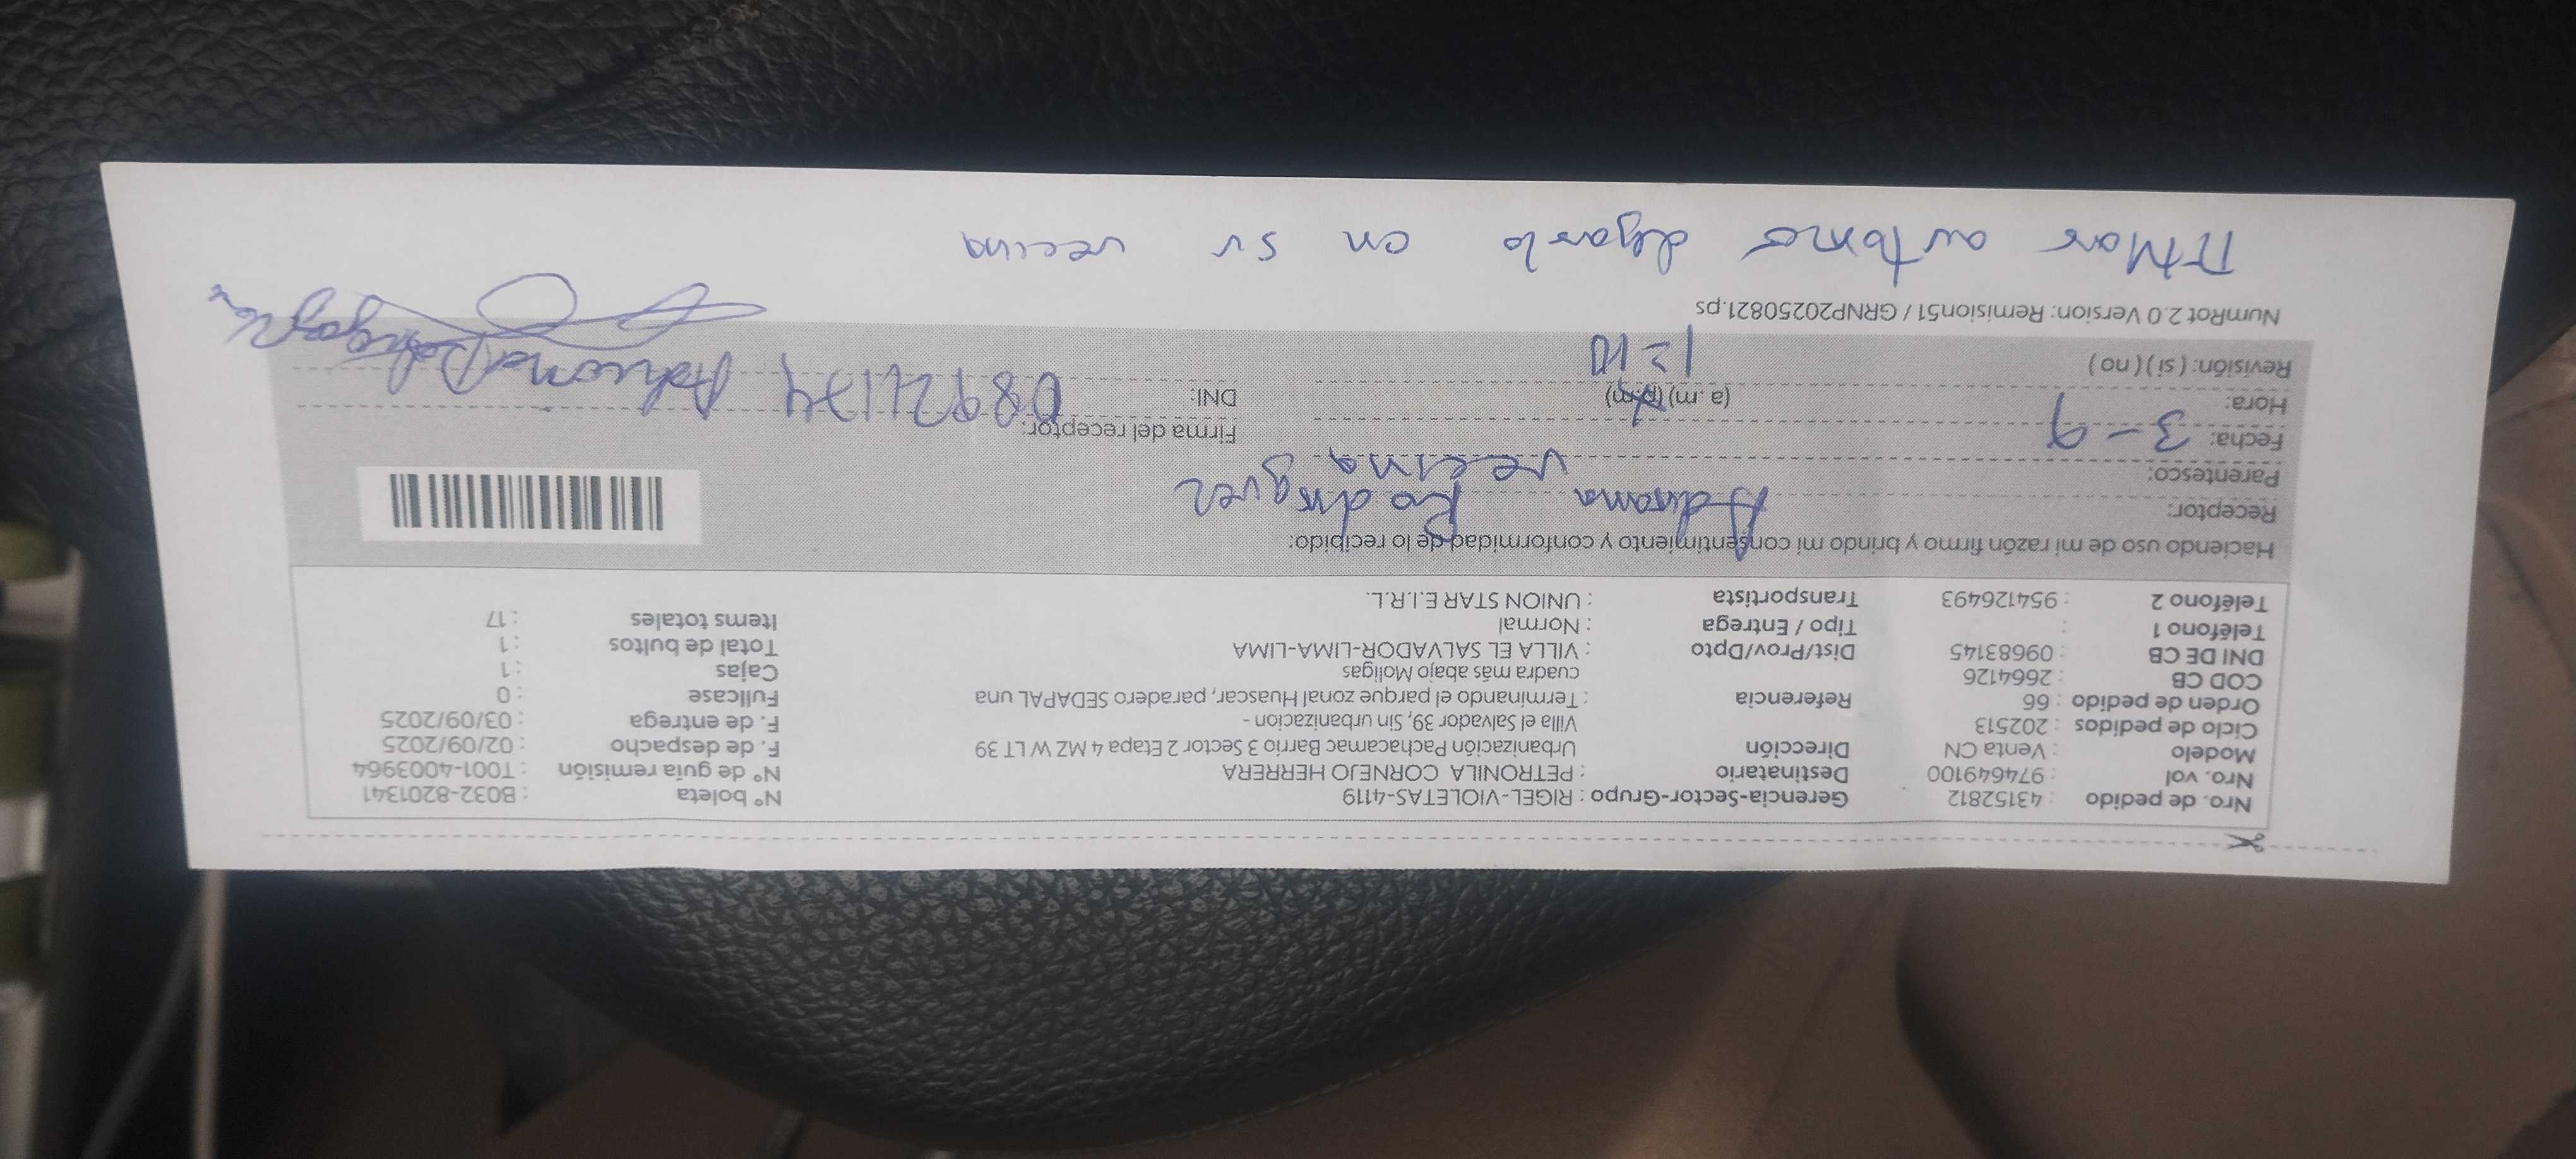 Nro. de pedido : 43152812 Gerencia-Sector-Grupo : RIGEL-VIOLETAS-4119 N° boleta : B032-8201341
Nro. vol : 974649100 Destinatario : PETRONILA CORNEJO HERRERA N° de guía remisión : T001-4003964
Modelo : Venta CN Dirección Urbanización Pachacamac Barrio 3 Sector 2 Etapa 4 MZ W LT 39 F. de despacho : 02/09/2025
Ciclo de pedidos : 202513 Villa el Salvador 39, Sin urbanizacion - F. de entrega : 03/09/2025
Orden de pedido : 66 Referencia : Terminando el parque zonal Huascar, paradero SEDAPAL una Fullcase : 0
COD CB : 2664126 cuadra más abajo Moligas Cajas : 1
DNI DE CB : 09683145 Dist/Prov/Dpto : VILLA EL SALVADOR-LIMA-LIMA Total de bultos : 1
Teléfono 1 : Tipo / Entrega : Normal Items totales : 17
Teléfono 2 : 954126493 Transportista : UNION STAR E.I.R.L.
Haciendo uso de mi razón firmo y brindo mi consentimiento y conformidad de lo recibido:
Receptor: Adriana Rodriguez
Parentesco: vecina
Fecha: 3-9 Firma del receptor:
Hora: (a.m) (p.m) DNI: 08921174 Adriana Rodriguez
Revisión: ( si ) ( no ) 1=10
NumRot 2.0 Version: Remision51 / GRNP20250821.ps
autorizo dejarlo en su vecina